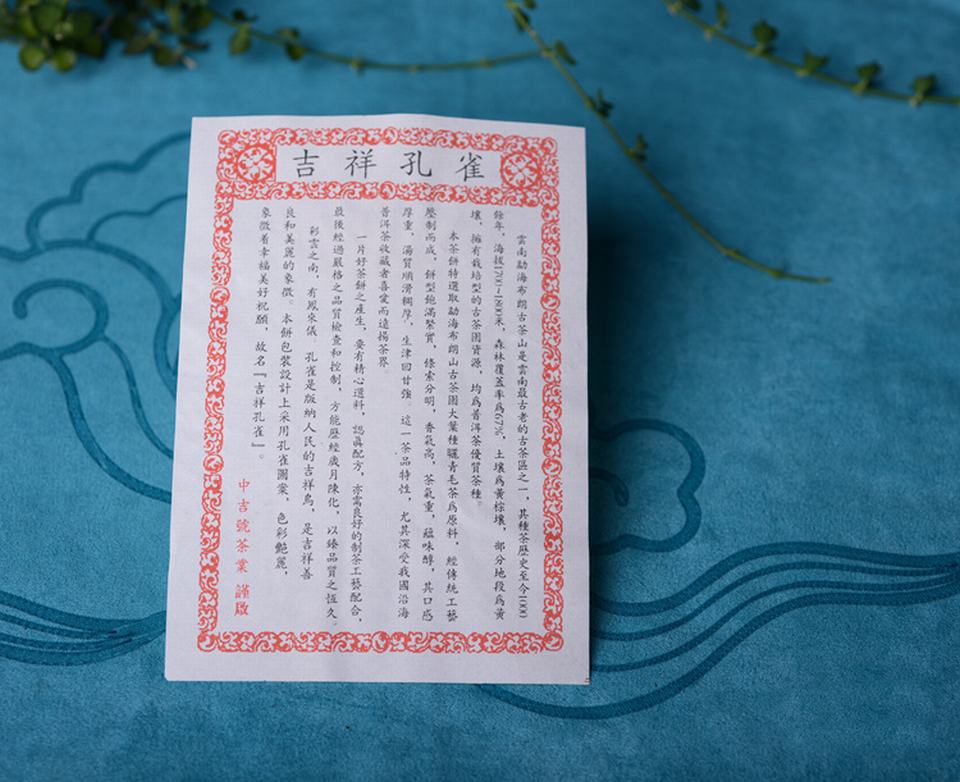 吉祥孔雀
雲南勐海布朗古茶山是雲南最古老的古茶區之一，其種茶歷史至今1000
餘年，海拔1700~1800米，森林覆蓋率爲67%，土壤爲黃棕壤，部分地段爲黃
壤，擁有栽培型的古茶園資源，均爲普洱茶優質茶種。
本茶餅特選取勐海布朗山古茶園大葉種曬青毛茶爲原料，經傳統工藝
壓制而成，餅型飽滿緊實，條索分明，香氣高，茶氣重，蘊味醇，其口感
厚重，湯質順滑稠厚，生津回甘強。這一茶品特性，尤其深受我國沿海
普洱茶收藏者喜愛而遠揚茶界。
一片好茶餅之産生，要有精心選料，認真配方，亦需良好的制茶工藝配合，
最後經過嚴格之品質檢查和控制，方能歷經歲月陳化，以臻品質之恆久。
彩雲之南，有鳳來儀。孔雀是版納人民的吉祥鳥，是吉祥善
良和美麗的象徵。本餅包裝設計上采用孔雀圖案，色彩艷麗，
象徵着幸福美好祝願，故名『吉祥孔雀』。
中吉號茶業 謹啟